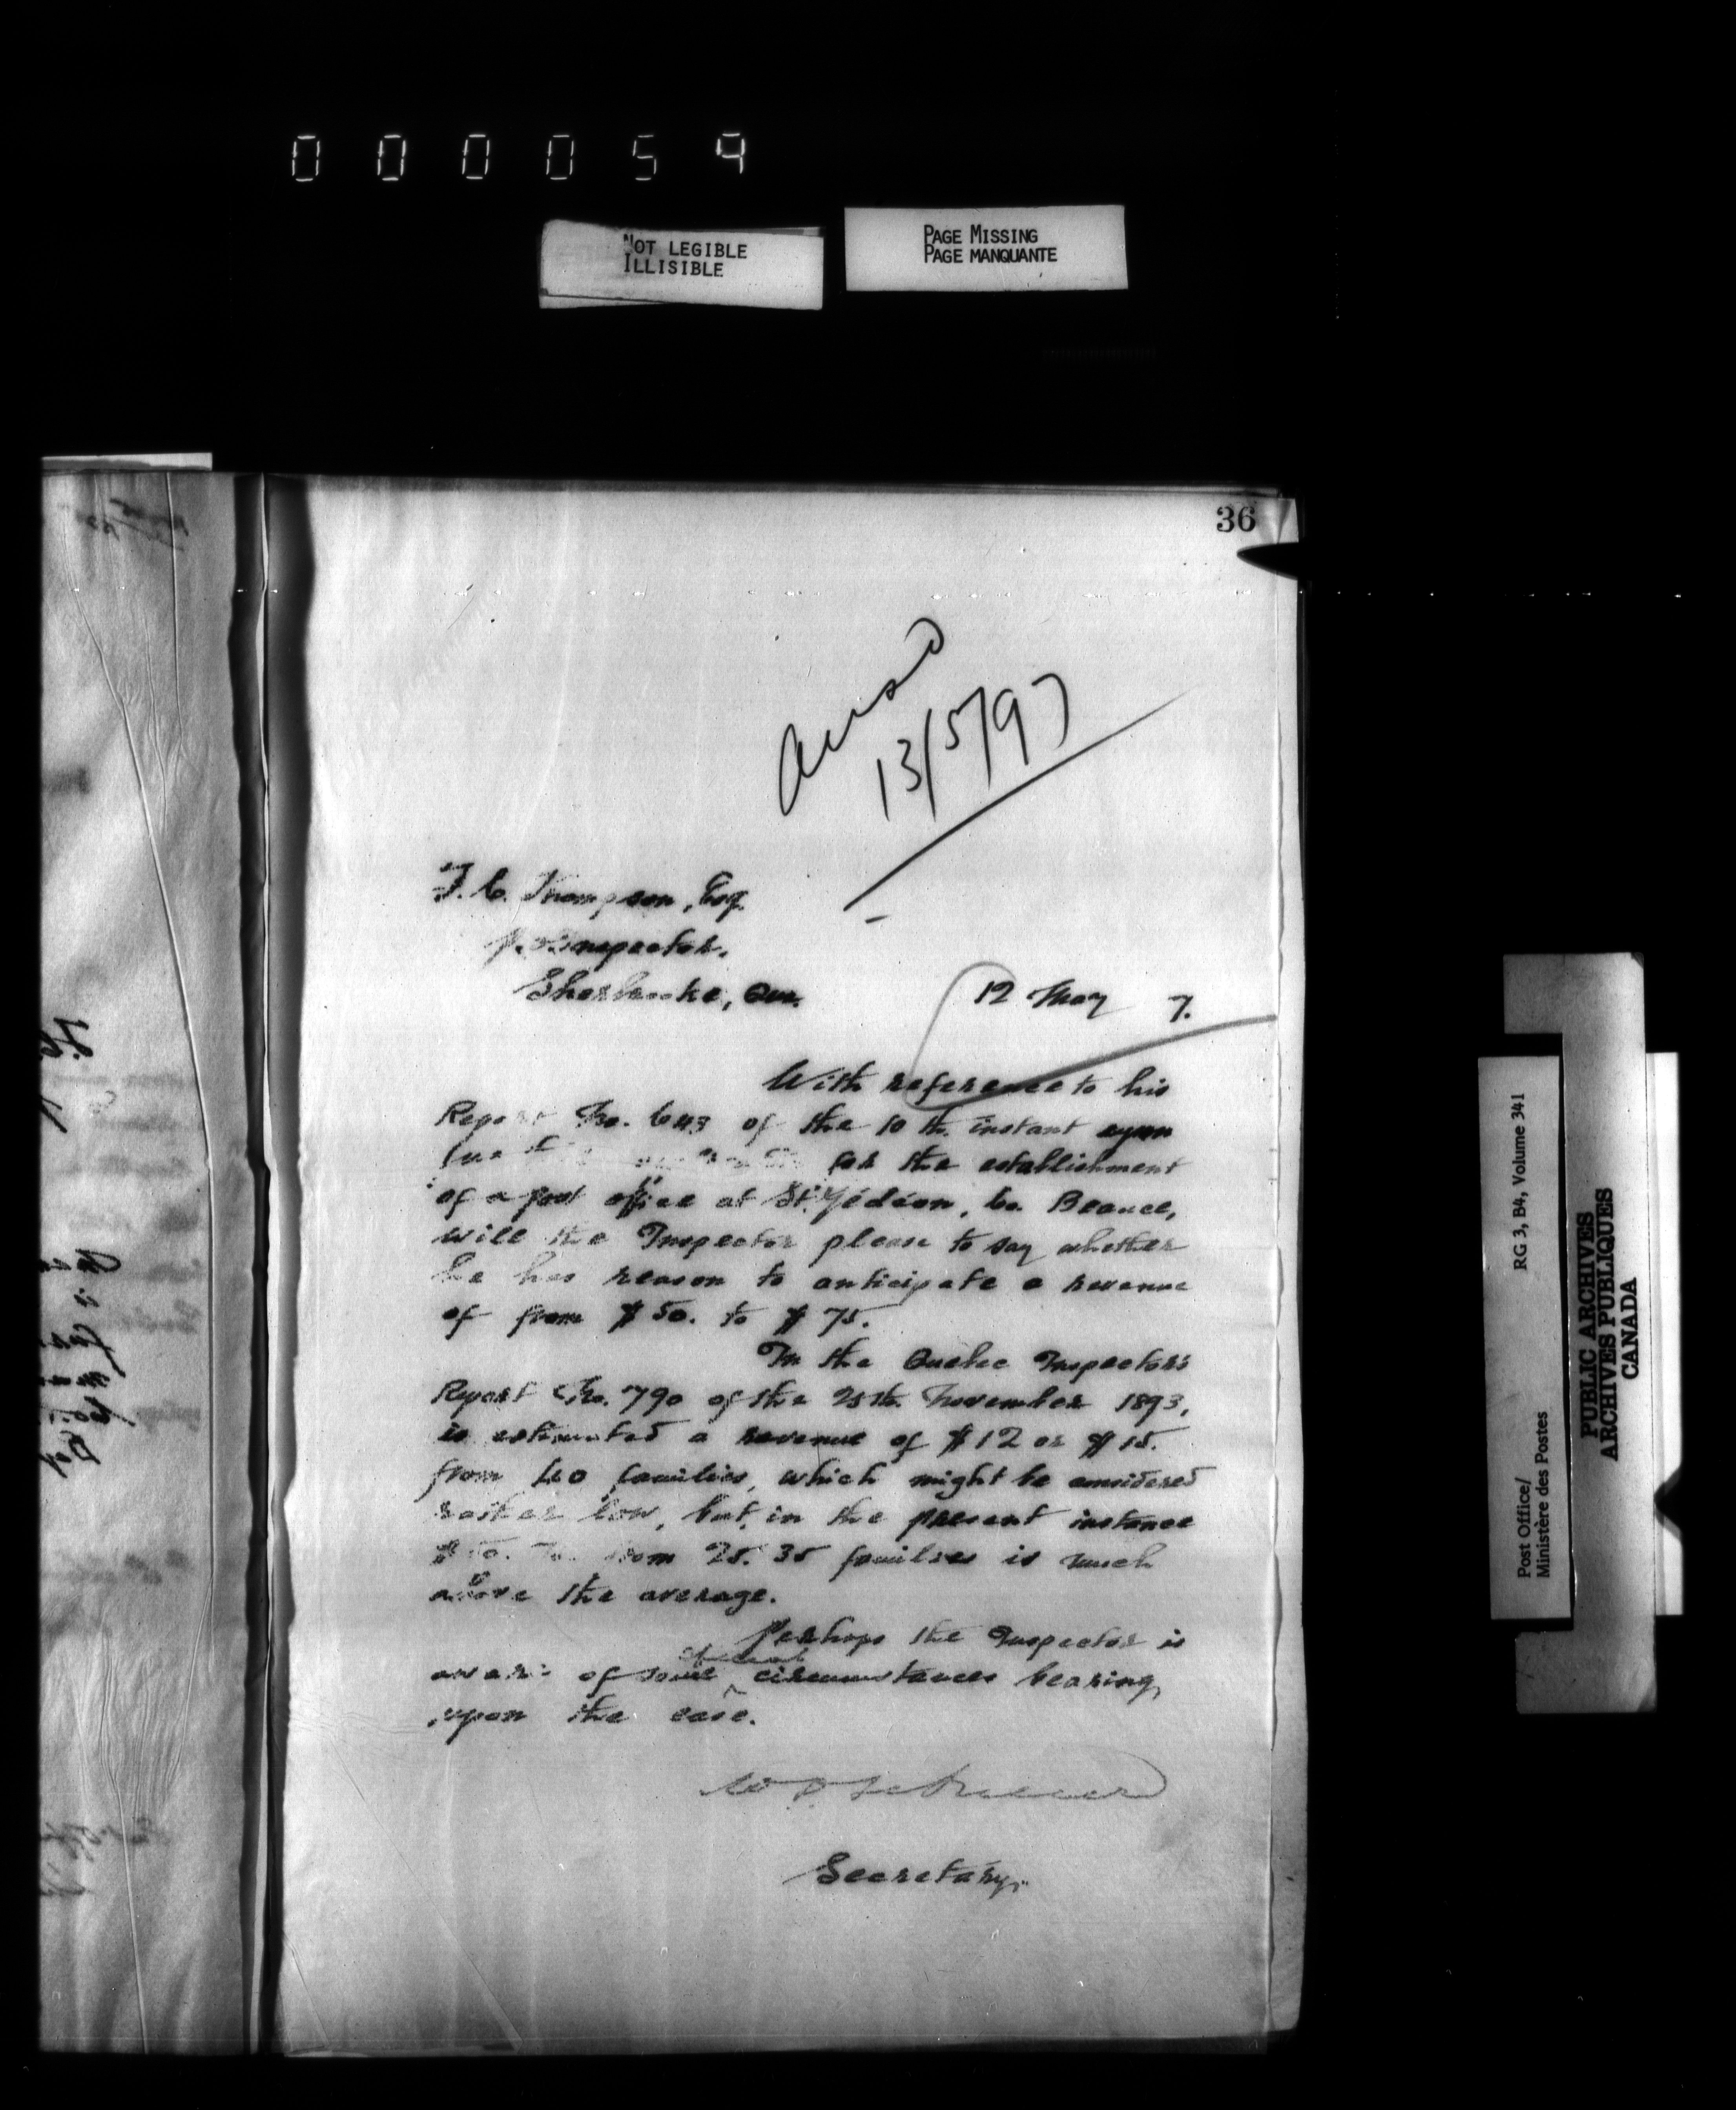 000059
NOT LEGIBLE
ILLISIBLE
PAGE MISSING
PAGE MANQUANTE
36
ansd
13/5/97
T. C. Thompson, Esq.
P. O. Inspector.
Sherbrooke, Que.
12 May 7.
With reference to his
Report No. 643 of the 10th. instant upon
for the establishment
of a post office at St. Gédéon, Co. Beauce,
will the Inspector please to say whether
he has reason to anticipate a revenue
of from $50. to $75.
In the Quebec Inspector's
Report No. 790 of the 25th. November 1893,
is estimated a revenue of $12 or $15.
from 40 families, which might be considered
rather low, but, in the present instance
from 25. 35 families is much
above the average.
Perhaps the Inspector is
aware of some circumstances bearing
upon the case.
Secretary.
Post Office/
Ministère des Postes
RG 3, B4, Volume 341
PUBLIC ARCHIVES
ARCHIVES PUBLIQUES
CANADA